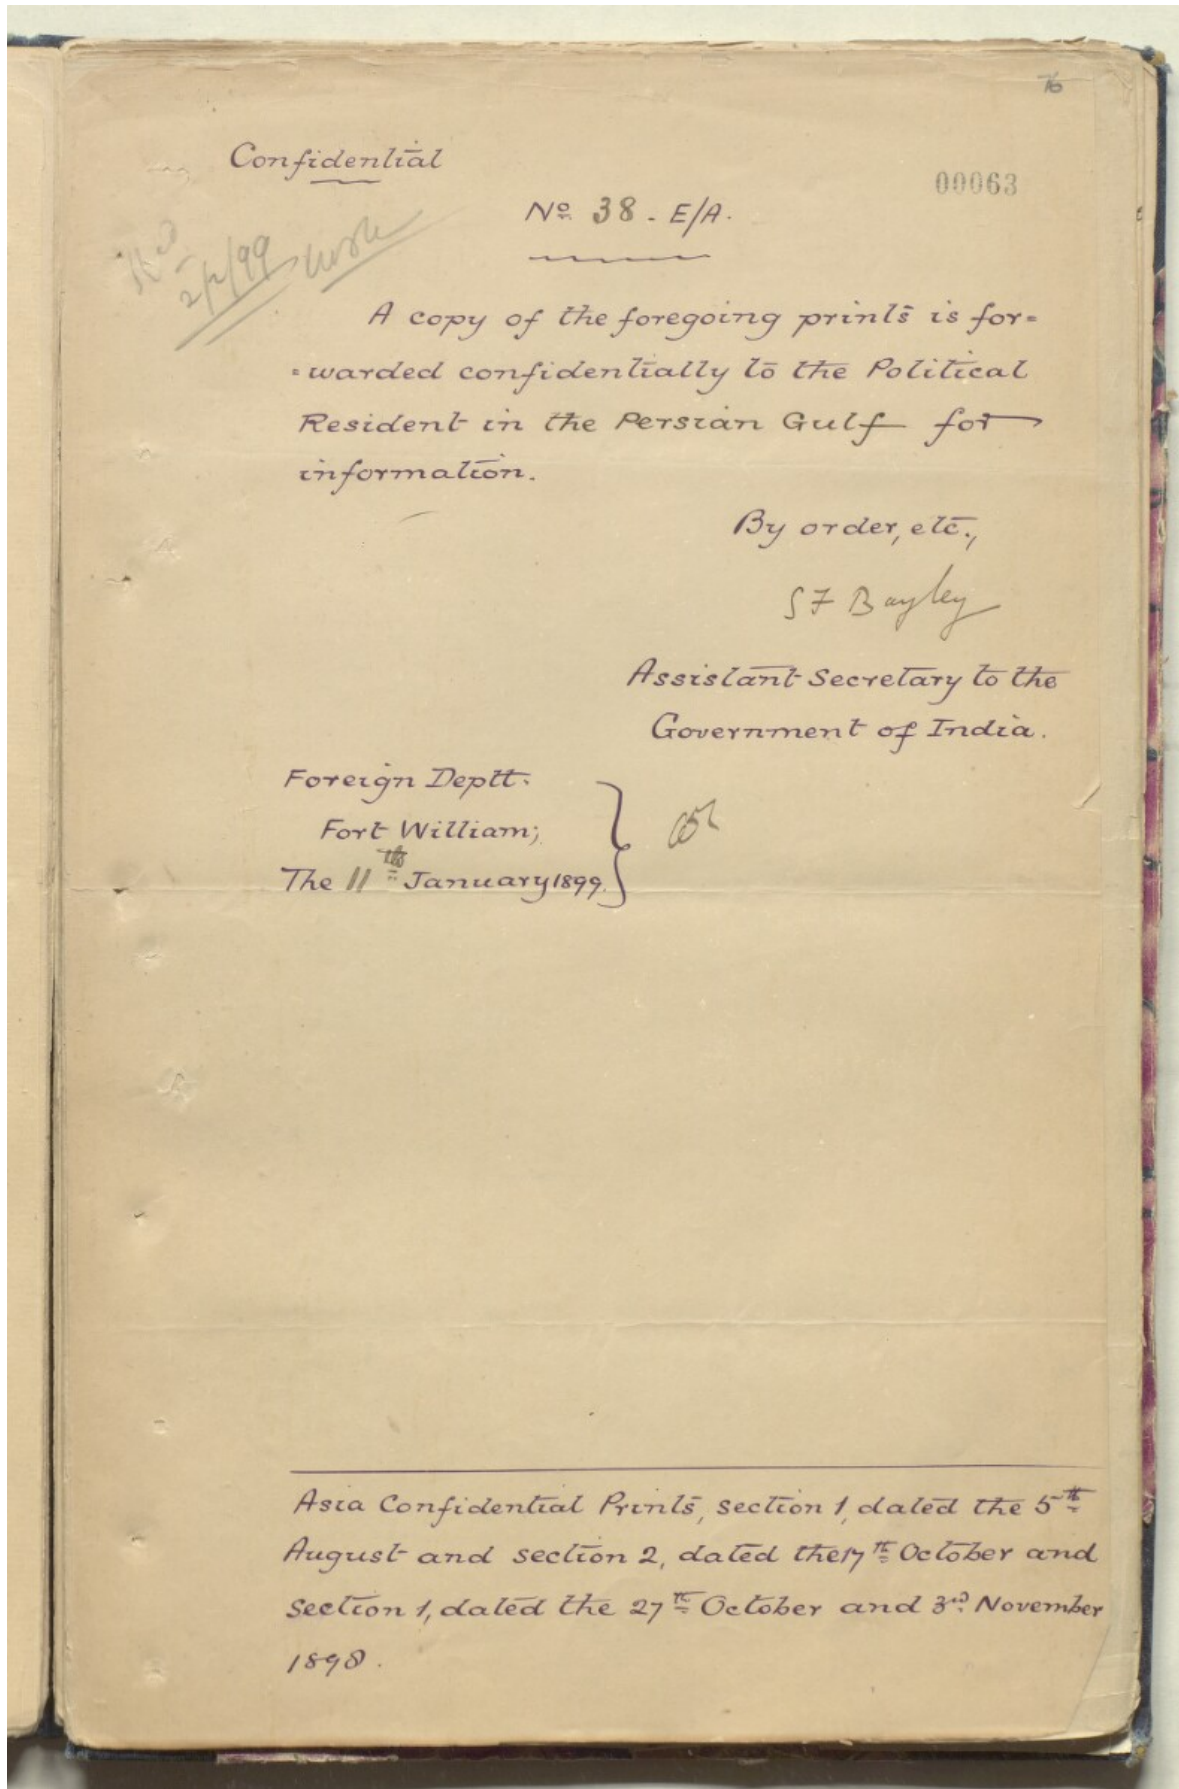 76
Confidential
00063
No 38 - E/A.
2/2/99
A copy of the foregoing prints is for=
=warded confidentially to the Political
Resident in the Persian Gulf for
information.
By order, etc.,
S F Bayley
Assistant Secretary to the
Government of India.
Foreign Deptt.
Fort William;
The 11th January 1899.
Asia Confidential Prints, section 1, dated the 5th
August and section 2, dated the 17th October and
section 1, dated the 27th October and 3rd November
1898.